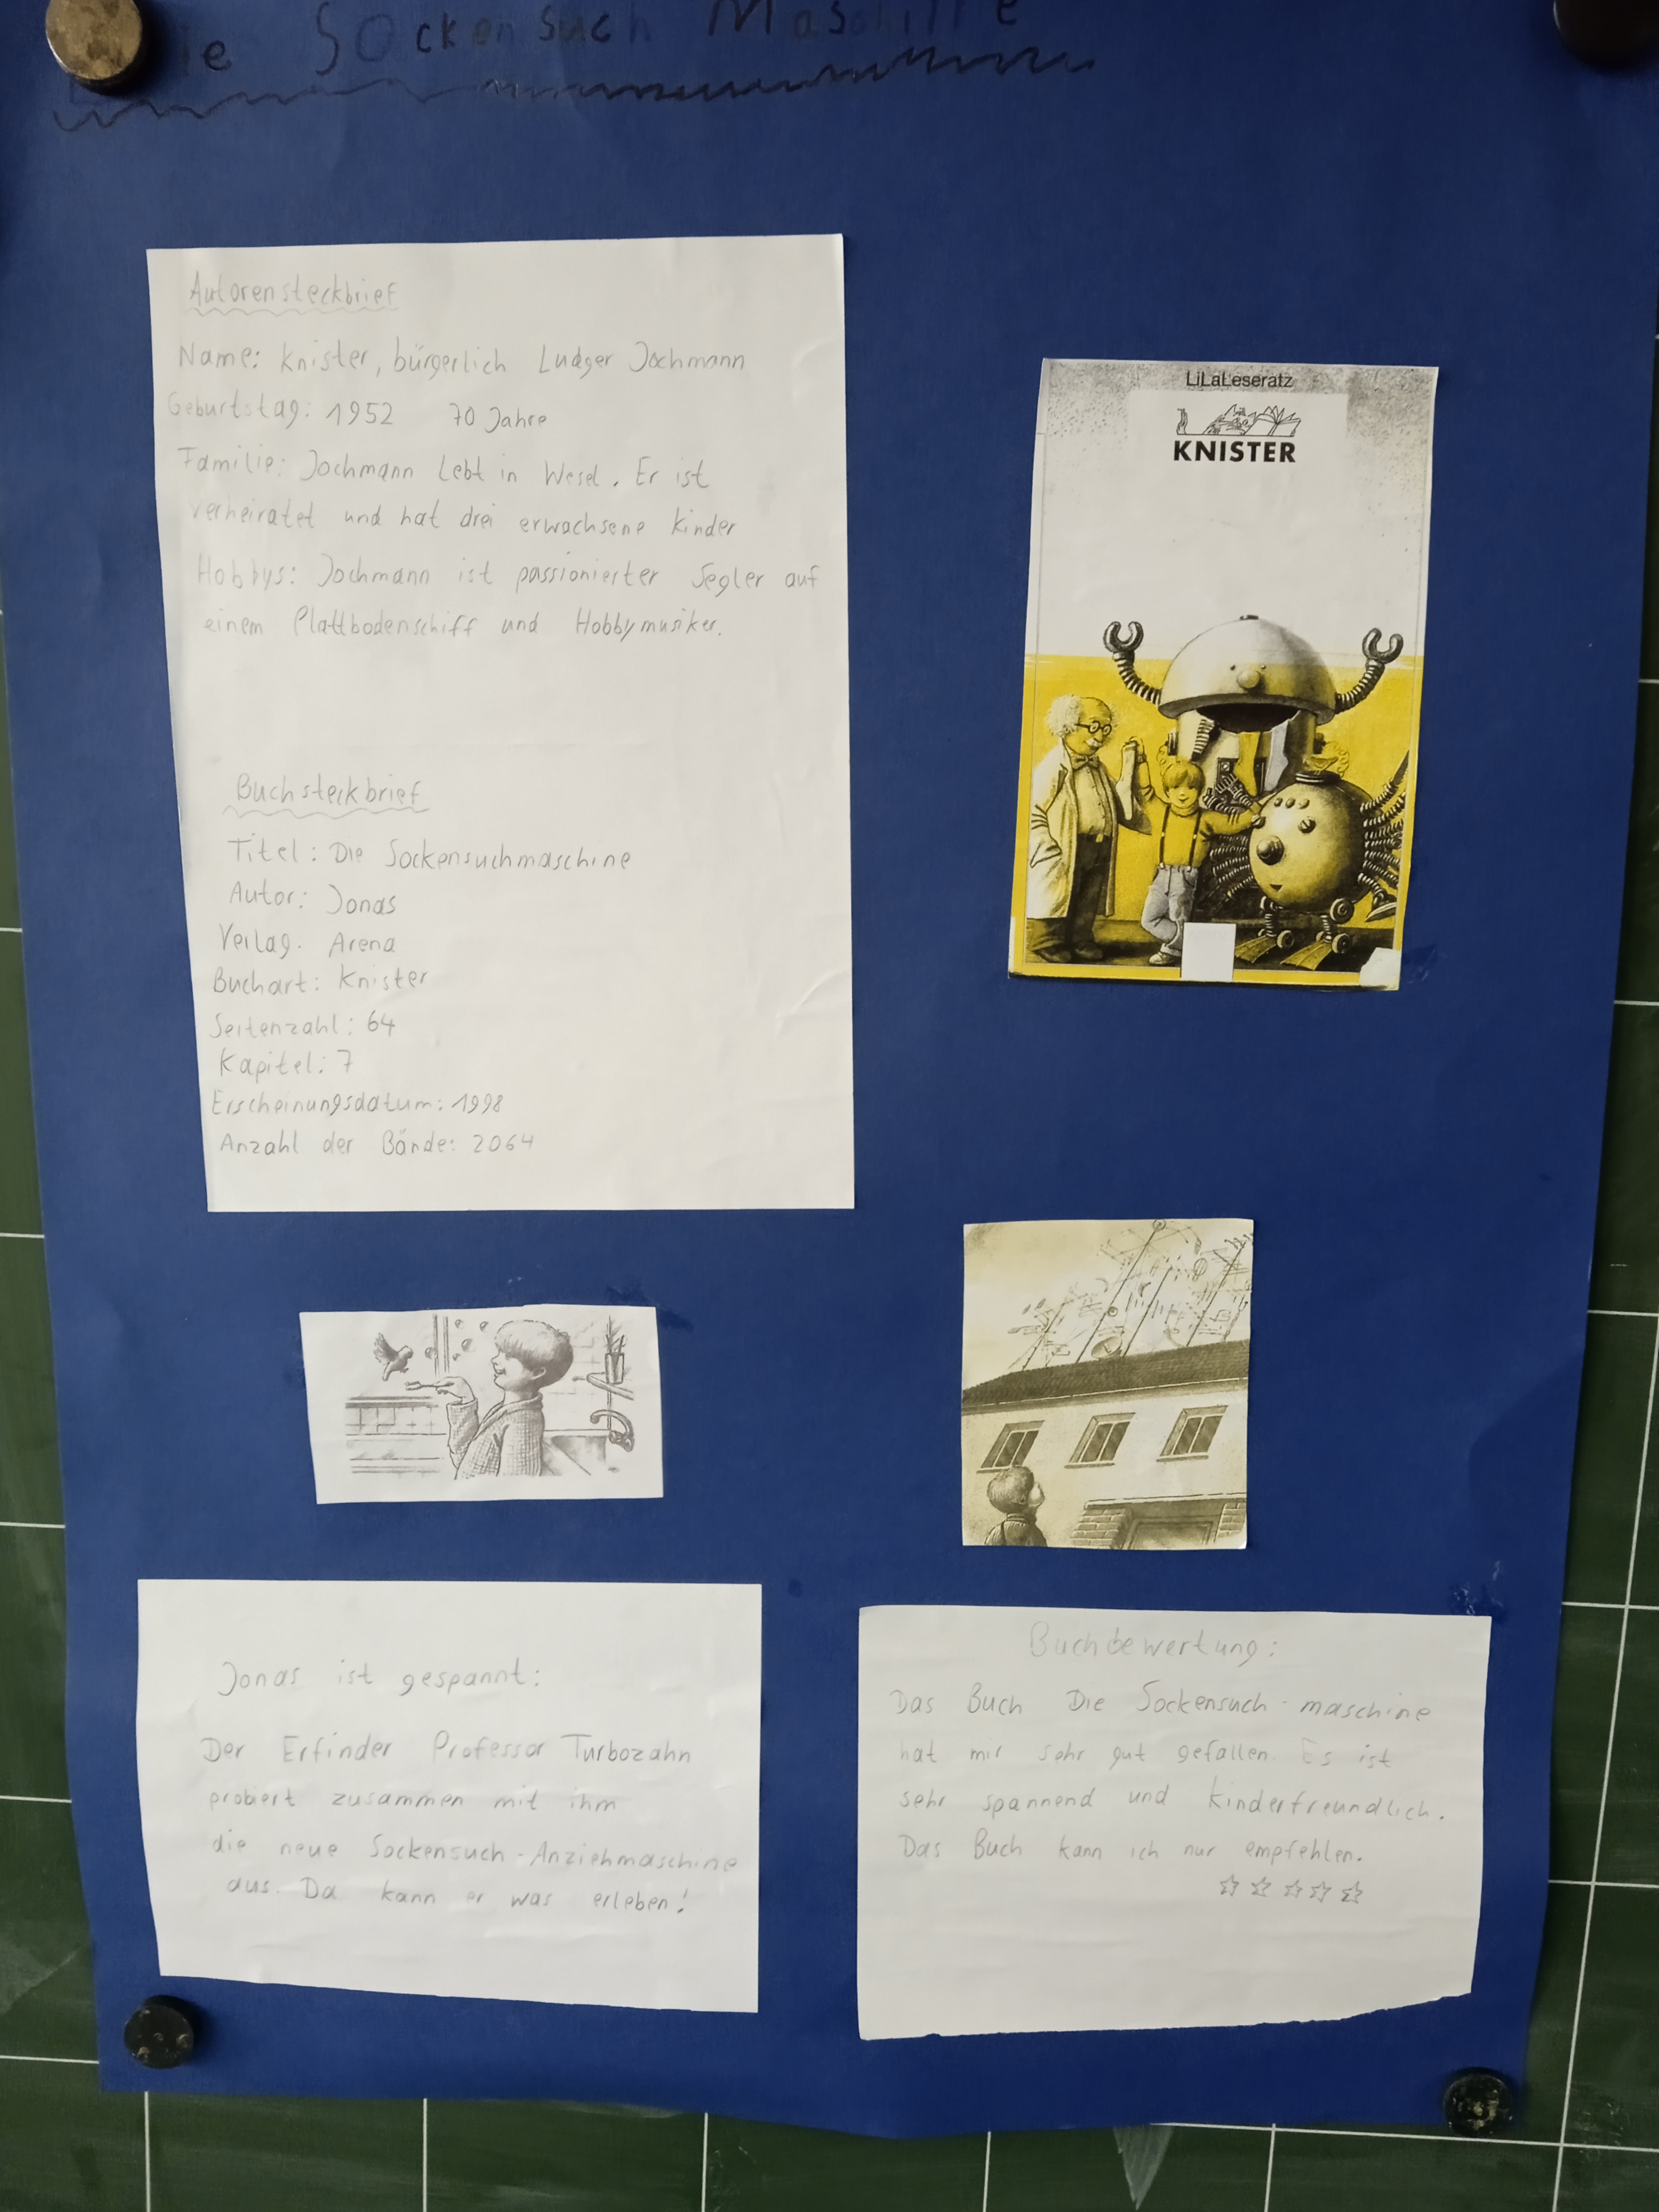 ie Sockensuch Maschine
Autorensteckbrief
Name: Knister, bürgerlich Ludger Jochmann
Geburtstag: 1952 70 Jahre
Familie: Jochmann Lebt in Wesel. Er ist
verheiratet und hat drei erwachsene Kinder
Hobbys: Jochmann ist passionierter Segler auf
einem Plattbodenschiff und Hobbymusiker.
Buchsteckbrief
Titel: Die Sockensuchmaschine
Autor: Jonas
Verlag. Arena
Buchart: Knister
Seitenzahl: 64
Kapitel: 7
Erscheinungsdatum: 1998
Anzahl der Bände: 2064
LiLaLeseratz
KNISTER
Jonas ist gespannt:
Der Erfinder Professor Turbozahn
probiert zusammen mit ihm
die neue Sockensuch-Anziehmaschine
aus. Da kann er was erleben!
Buchbewertung:
Das Buch Die Sockensuch-maschine
hat mir sehr gut gefallen. Es ist
sehr spannend und kinderfreundlich.
Das Buch kann ich nur empfehlen.